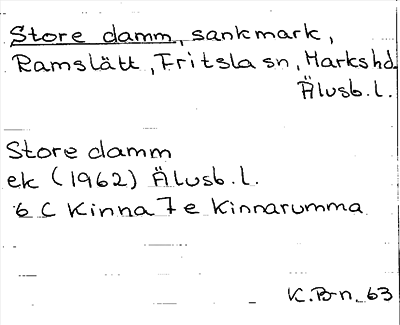 Store damm, sankmark,
Ramslätt, Fritsla sn, Markshd.
Älvsb. l.
Store damm
ek (1962) Älvsb. l.
6 C Kinna 7 e Kinnarumma
K. B-n. 63